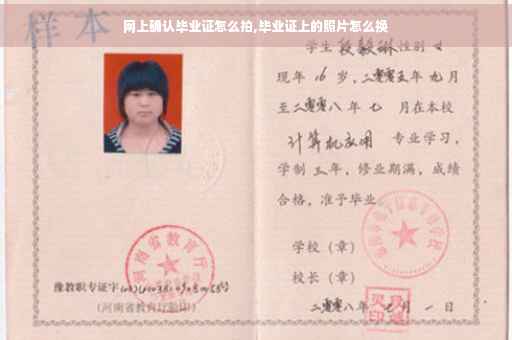 网上确认毕业证怎么拍,毕业证上的照片怎么换
样本
学生段毅琳性别女
现年16岁,二零零五年九月
至二零零八年七月在本校
计算机应用专业学习,
学制三年,修业期满,成绩
合格,准予毕业
学校(章)
校长(章)
二零零八年七月一日
河南省教育厅
豫教职专证字
(河南省教育厅验印)